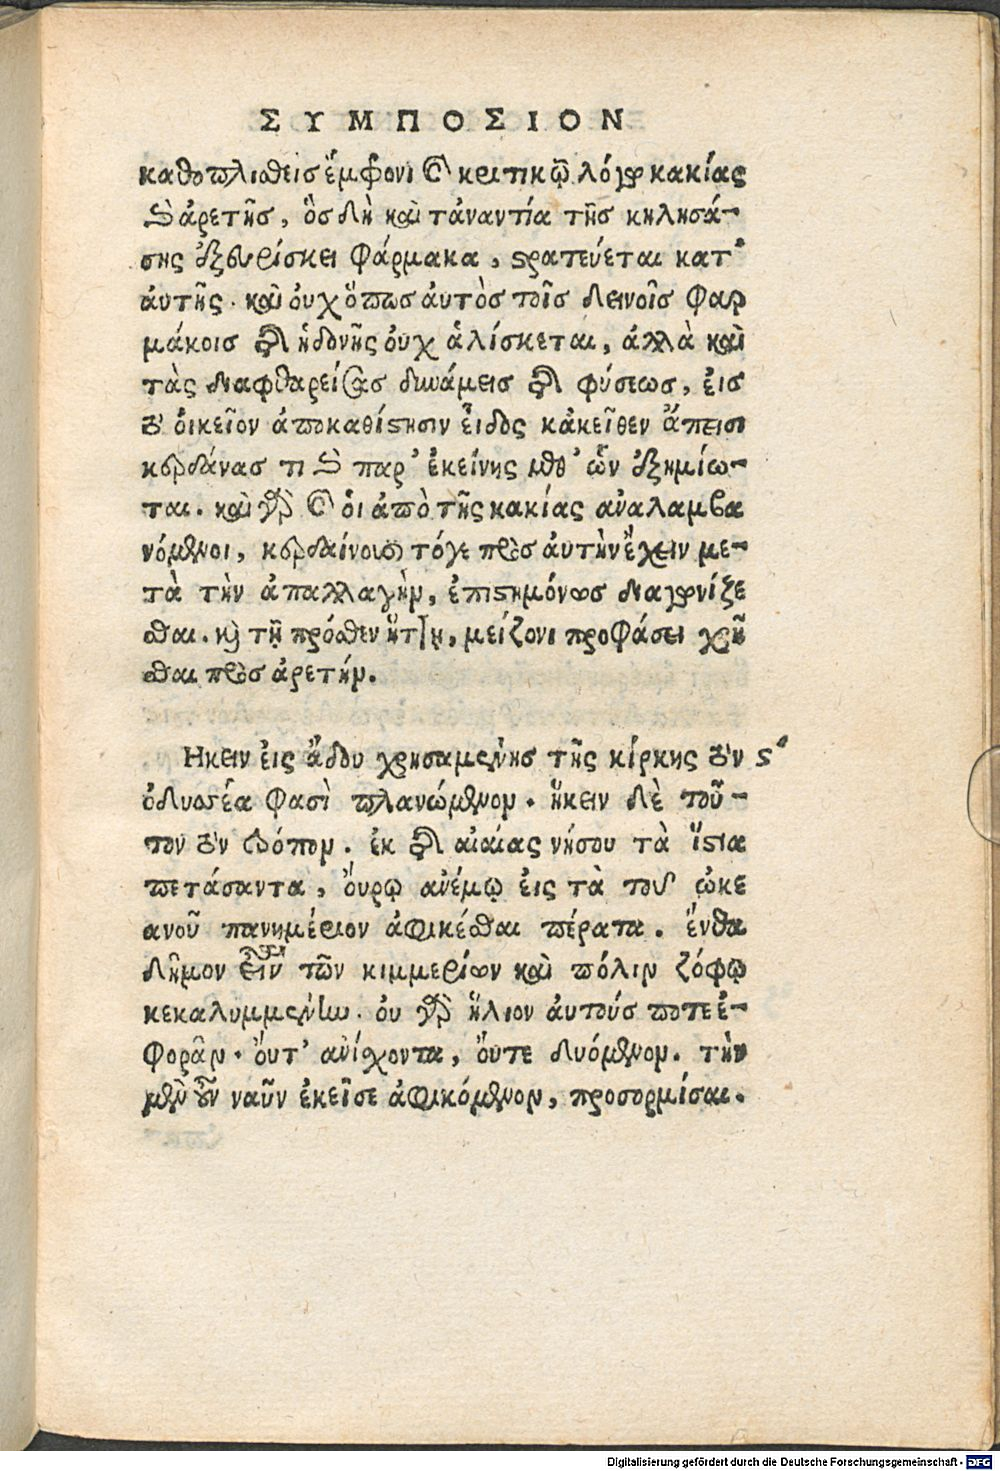 ΣΥΜΠΟΣΙΟΝ
καθοπλισθεὶς ἔμφρονι καὶ κριτικῷ λόγῳ κακίας
καὶ ἀρετῆς, ὃς δὴ καὶ τἀναντία τῆς κηλησά-
σης ἐξευρίσκει φάρμακα, στρατεύεται κατ'
ἀυτῆς. καὶ ὀυχ ὅπως ἀυτὸς τοῖς δεινοῖς φαρ
μάκοις τῆς ἡδονῆς ὀυχ ἁλίσκεται, ἀλλὰ καὶ
τὰς διαφθαρείσας δυνάμεις τῆς φύσεως, ἐις
τὸ ὀικεῖον ἀποκαθίστησιν εἶδος κἀκεῖθεν ἄπεισι
κερδάνας τι παρ' ἐκείνης μεθ' ὧν ἐζημίω-
ται. καὶ γὰρ οἱ ἀπὸ τῆς κακίας ἀναλαμβα
νόμενοι, κερδαίνουσι τόγε πρὸς ἀυτὴν ἔχειν με-
τὰ τὴν ἀπαλλαγὴν, ἐπιστημόνως διαγωνίζε
σθαι. καὶ τῇ πρόσθεν ἥττῃ, μείζονι προφάσει χρῆ
σθαι πρὸς ἀρετήν.
Ηκειν ἐις ἅδου χρησαμένης τῆς κίρκης τὸν ς'
ὀδυσσέα φασὶ πλανώμενον. ἥκειν δὲ τοῦ-
τον τὸν τρόπον. ἐκ τῆς αἰαίας νήσου τὰ ἵστια
πετάσαντα, ὄυρῳ ἀνέμῳ ἐις τὰ τοῦ ὠκε
ανοῦ πανημέριον ἀφικέσθαι πέρατα. ἔνθα
δῆμον εἶναι τῶν κιμμερίων καὶ πόλιν ζόφῳ
κεκαλυμμένην. ὀυ γὰρ ἥλιον ἀυτούς ποτε ἐ-
φορᾶν. ὄυτ' ἀνίσχοντα, ὄυτε δυόμενον. τὴν
μὲν οὖν ναῦν ἐκεῖσε ἀφικόμενον, προσορμίσαι.
Digitalisierung gefördert durch die Deutsche Forschungsgemeinschaft - DFG